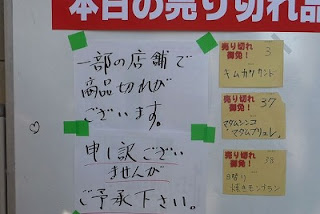 本日の売り切れ品
一部の店舗で
商品切れが
ございます。
申し訳ござい
ませんが
ご予承下さい。
売り切れ
御免!
3
キムカツカント
売り切れ
御免!
37
マダムシンコ
マダムブリュレ
売り切れ
御免!
38
焼きモンブラン